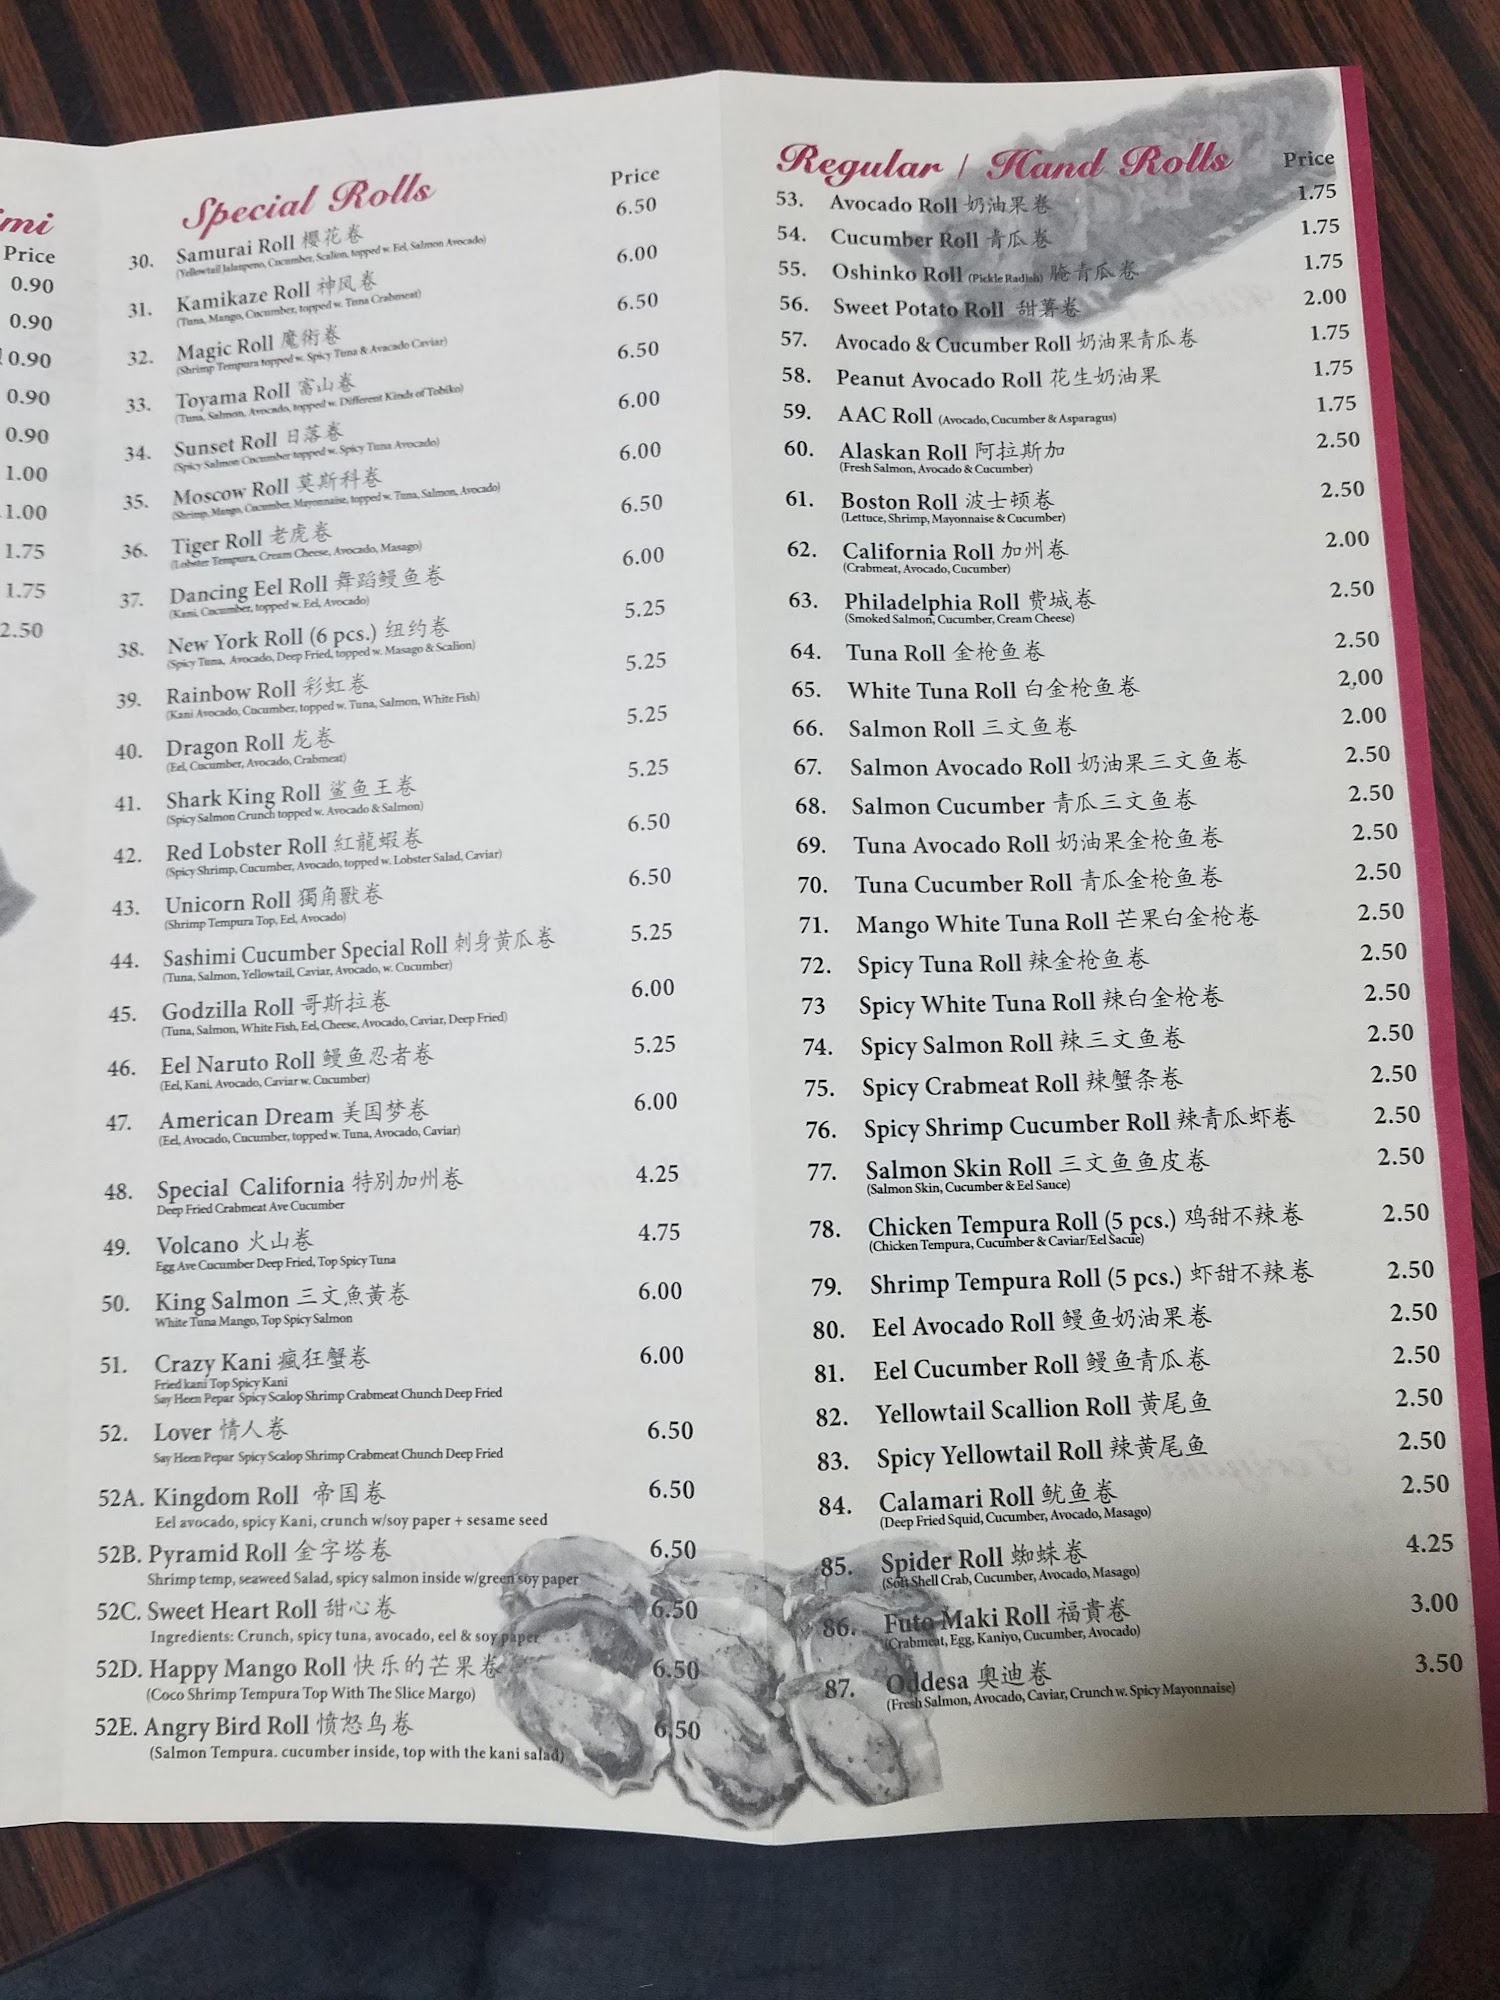 imi
Price
0.90
0.90
0.90
0.90
0.90
1.00
1.00
1.75
1.75
2.50
Special Rolls Price
30. Samurai Roll 櫻花卷 6.50
(Yellowtail Jalanpeno, Cucumber, Scalion, topped w. Eel, Salmon Avocado)
31. Kamikaze Roll 神风卷 6.00
(Tuna, Mango, Cucumber, topped w. Tuna Crabmeat)
32. Magic Roll 魔術卷 6.50
(Shrimp Tempura topped w. Spicy Tuna & Avacado Caviar)
33. Toyama Roll 富山卷 6.50
(Tuna, Salmon, Avocado, topped w. Different Kinds of Tobiko)
34. Sunset Roll 日落卷 6.00
(Spicy Salmon Cucumber topped w. Spicy Tuna Avocado)
35. Moscow Roll 莫斯科卷 6.00
(Shrimp, Mango, Cucumber, Mayonnaise, topped w. Tuna, Salmon, Avocado)
36. Tiger Roll 老虎卷 6.50
(Lobster Tempura, Cream Cheese, Avocado, Masago)
37. Dancing Eel Roll 舞蹈鳗鱼卷 6.00
(Kani, Cucumber, topped w. Eel, Avocado)
38. New York Roll (6 pcs.) 纽约卷 5.25
(Spicy Tuna, Avocado, Deep Fried, topped w. Masago & Scalion)
39. Rainbow Roll 彩虹卷 5.25
(Kani Avocado, Cucumber, topped w. Tuna, Salmon, White Fish)
40. Dragon Roll 龙卷 5.25
(Eel, Cucumber, Avocado, Crabmeat)
41. Shark King Roll 鲨鱼王卷 5.25
(Spicy Salmon Crunch topped w. Avocado & Salmon)
42. Red Lobster Roll 紅龍蝦卷 6.50
(Spicy Shrimp, Cucumber, Avocado, topped w. Lobster Salad, Caviar)
43. Unicorn Roll 獨角獸卷 6.50
(Shrimp Tempura Top, Eel, Avocado)
44. Sashimi Cucumber Special Roll 刺身黄瓜卷 5.25
(Tuna, Salmon, Yellowtail, Caviar, Avocado, w. Cucumber)
45. Godzilla Roll 哥斯拉卷 6.00
(Tuna, Salmon, White Fish, Eel, Cheese, Avocado, Caviar, Deep Fried)
46. Eel Naruto Roll 鳗鱼忍者卷 5.25
(Eel, Kani, Avocado, Caviar w. Cucumber)
47. American Dream 美国梦卷 6.00
(Eel, Avocado, Cucumber, topped w. Tuna, Avocado, Caviar)
48. Special California 特別加州卷 4.25
Deep Fried Crabmeat Ave Cucumber
49. Volcano 火山卷 4.75
Egg Ave Cucumber Deep Fried, Top Spicy Tuna
50. King Salmon 三文魚黃卷 6.00
White Tuna Mango, Top Spicy Salmon
51. Crazy Kani 瘋狂蟹卷 6.00
Fried kani Top Spicy Kani
Say Heen Pepar Spicy Scalop Shrimp Crabmeat Chunch Deep Fried
52. Lover 情人卷 6.50
Say Heen Pepar Spicy Scalop Shrimp Crabmeat Chunch Deep Fried
52A. Kingdom Roll 帝国卷 6.50
Eel avocado, spicy Kani, crunch w/soy paper + sesame seed
52B. Pyramid Roll 金字塔卷 6.50
Shrimp temp, seaweed Salad, spicy salmon inside w/green soy paper
52C. Sweet Heart Roll 甜心卷 6.50
Ingredients: Crunch, spicy tuna, avocado, eel & soy paper
52D. Happy Mango Roll 快乐的芒果卷 6.50
(Coco Shrimp Tempura Top With The Slice Margo)
52E. Angry Bird Roll 愤怒鸟卷 6.50
(Salmon Tempura. cucumber inside, top with the kani salad)
Regular / Hand Rolls Price
53. Avocado Roll 奶油果卷 1.75
54. Cucumber Roll 青瓜卷 1.75
55. Oshinko Roll (Pickle Radish) 腌青瓜卷 1.75
56. Sweet Potato Roll 甜薯卷 2.00
57. Avocado & Cucumber Roll 奶油果青瓜卷 1.75
58. Peanut Avocado Roll 花生奶油果 1.75
59. AAC Roll (Avocado, Cucumber & Asparagus) 1.75
60. Alaskan Roll 阿拉斯加 2.50
(Fresh Salmon, Avocado & Cucumber)
61. Boston Roll 波士顿卷 2.50
(Lettuce, Shrimp, Mayonnaise & Cucumber)
62. California Roll 加州卷 2.00
(Crabmeat, Avocado, Cucumber)
63. Philadelphia Roll 费城卷 2.50
(Smoked Salmon, Cucumber, Cream Cheese)
64. Tuna Roll 金枪鱼卷 2.50
65. White Tuna Roll 白金枪鱼卷 2.00
66. Salmon Roll 三文鱼卷 2.00
67. Salmon Avocado Roll 奶油果三文鱼卷 2.50
68. Salmon Cucumber 青瓜三文鱼卷 2.50
69. Tuna Avocado Roll 奶油果金枪鱼卷 2.50
70. Tuna Cucumber Roll 青瓜金枪鱼卷 2.50
71. Mango White Tuna Roll 芒果白金枪卷 2.50
72. Spicy Tuna Roll 辣金枪鱼卷 2.50
73 Spicy White Tuna Roll 辣白金枪卷 2.50
74. Spicy Salmon Roll 辣三文鱼卷 2.50
75. Spicy Crabmeat Roll 辣蟹条卷 2.50
76. Spicy Shrimp Cucumber Roll 辣青瓜虾卷 2.50
77. Salmon Skin Roll 三文鱼鱼皮卷 2.50
(Salmon Skin, Cucumber & Eel Sauce)
78. Chicken Tempura Roll (5 pcs.) 鸡甜不辣卷 2.50
(Chicken Tempura, Cucumber & Caviar/Eel Sacue)
79. Shrimp Tempura Roll (5 pcs.) 虾甜不辣卷 2.50
80. Eel Avocado Roll 鳗鱼奶油果卷 2.50
81. Eel Cucumber Roll 鳗鱼青瓜卷 2.50
82. Yellowtail Scallion Roll 黄尾鱼 2.50
83. Spicy Yellowtail Roll 辣黄尾鱼 2.50
84. Calamari Roll 鱿鱼卷 2.50
(Deep Fried Squid, Cucumber, Avocado, Masago)
85. Spider Roll 蜘蛛卷 4.25
(Soft Shell Crab, Cucumber, Avocado, Masago)
86. Futo Maki Roll 福貴卷 3.00
(Crabmeat, Egg, Kaniyo, Cucumber, Avocado)
87. Oddesa 奥迪卷 3.50
(Fresh Salmon, Avocado, Caviar, Crunch w. Spicy Mayonnaise)